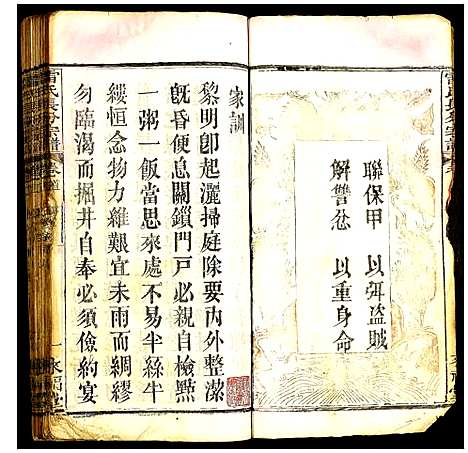 聯保甲　以弭盜賊
解讐忿　以重身命
家訓
黎明卽起灑掃庭除要內外整潔
旣昏便息關鎖門戶必親自檢點
一粥一飯當思來處不易半絲半
縷恒念物力維艱宜未雨而綢繆
勿臨渴而掘井自奉必須儉約宴
雷氏長公宗譜
卷首
一
永福堂